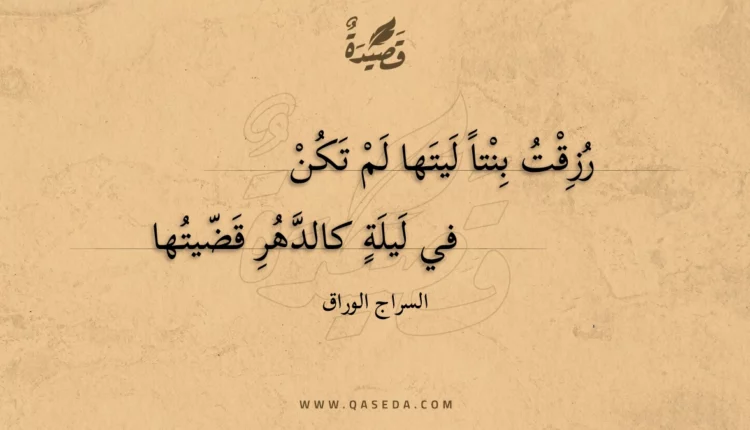 قَصِيْدَةٌ
رُزِقْتُ بِنْتاً لَيتَها لَمْ تَكُنْ
في لَيلَةٍ كالدَّهُرِ قَضّيتُها
السراج الوراق
WWW.QASEDA.COM